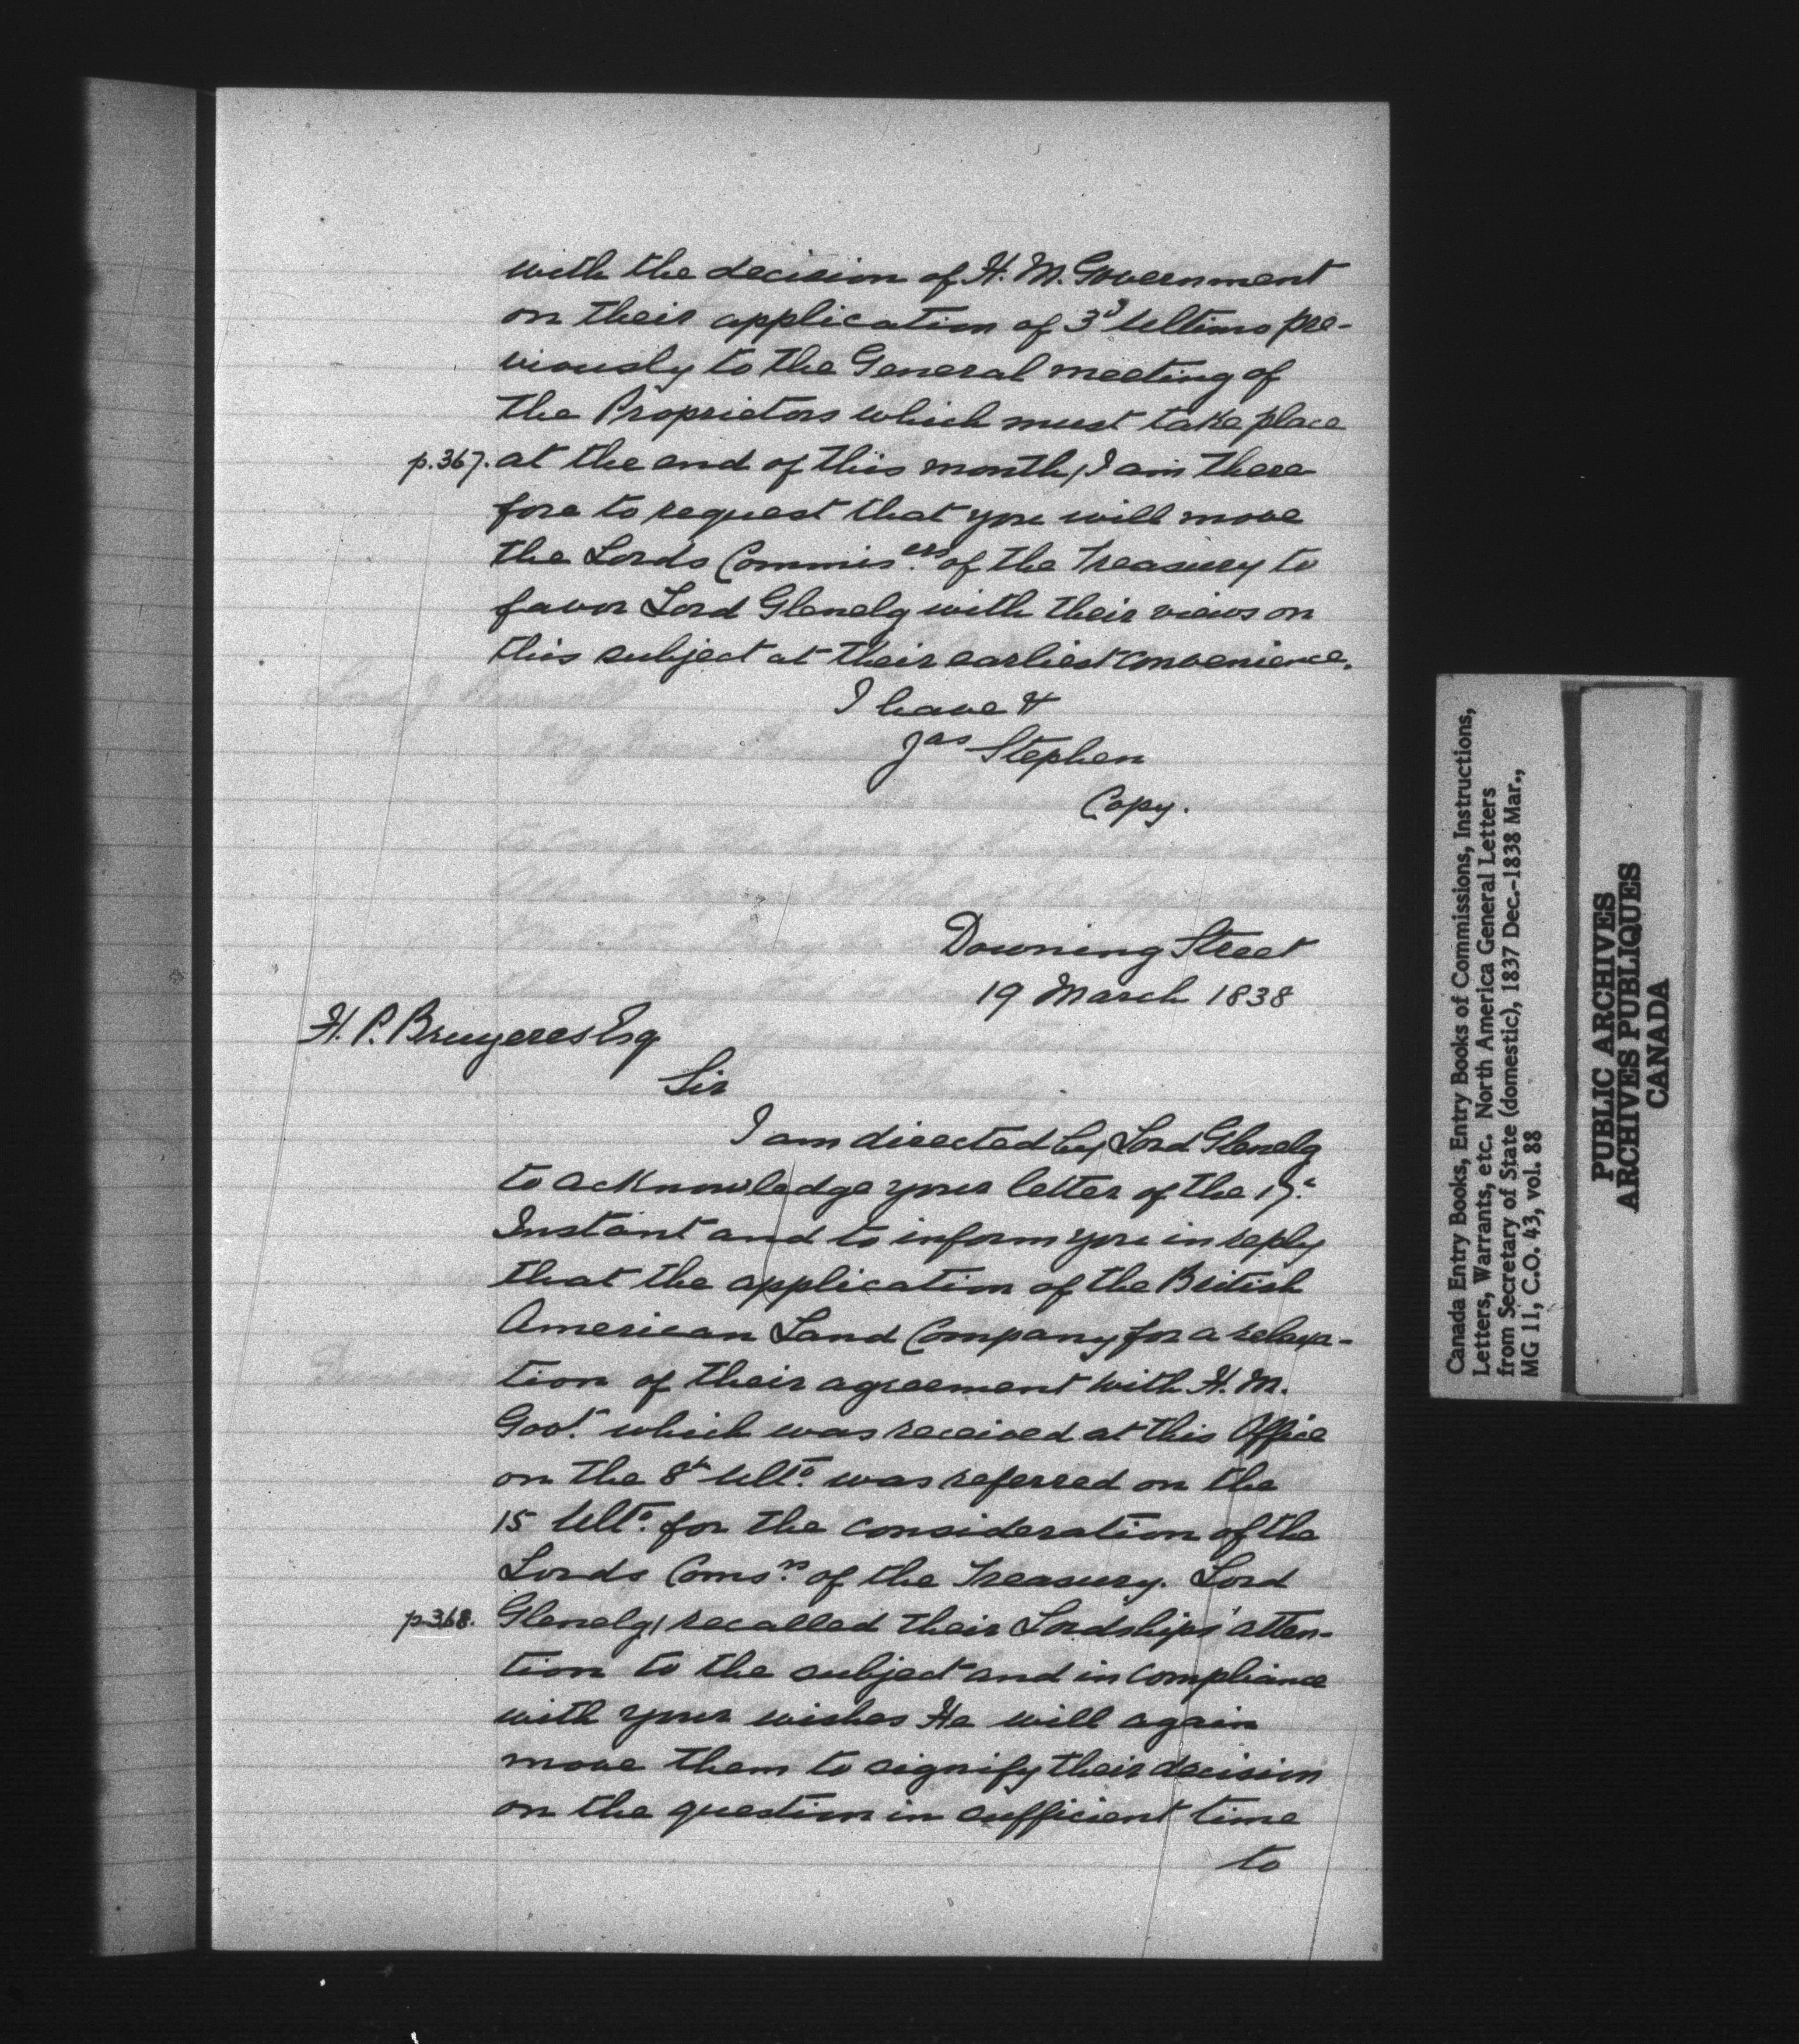 with the decision of H. M. Government
on their application of 3d Ultimo pre-
viously to the General meeting of
the Proprietors which must take place
p.367. at the end of this month, I am there
fore to request that you will move
the Lords Commis.ers of the Treasury to
favor Lord Glenelg with their views on
this subject at their earliest convenience.
I have &
Jas Stephen
Copy.
Downing Street
19 March 1838
H. P. Bruyeres Esq
Sir
I am directed by Lord Glenelg
to acknowledge your letter of the
Instant and to inform you in reply
that the application of the British
American Land Company for a relaxa-
tion of their agreement with H. M.
Govt. which was received at this Office
on the 8th Ulto. was referred on the
15 Ulto. for the consideration of the
Lords Comsrs. of the Treasury. Lord
p368. Glenelg / recalled their Lordships' atten-
tion to the subject and in compliance
with your wishes He will again
move them to signify their decision
on the question in sufficient time
to
Canada Entry Books, Entry Books of Commissions, Instructions,
Letters, Warrants, etc. North America General Letters
from Secretary of State (domestic), 1837 Dec.-1838 Mar.,
MG 11, C.O. 43, vol. 88
PUBLIC ARCHIVES
ARCHIVES PUBLIQUES
CANADA